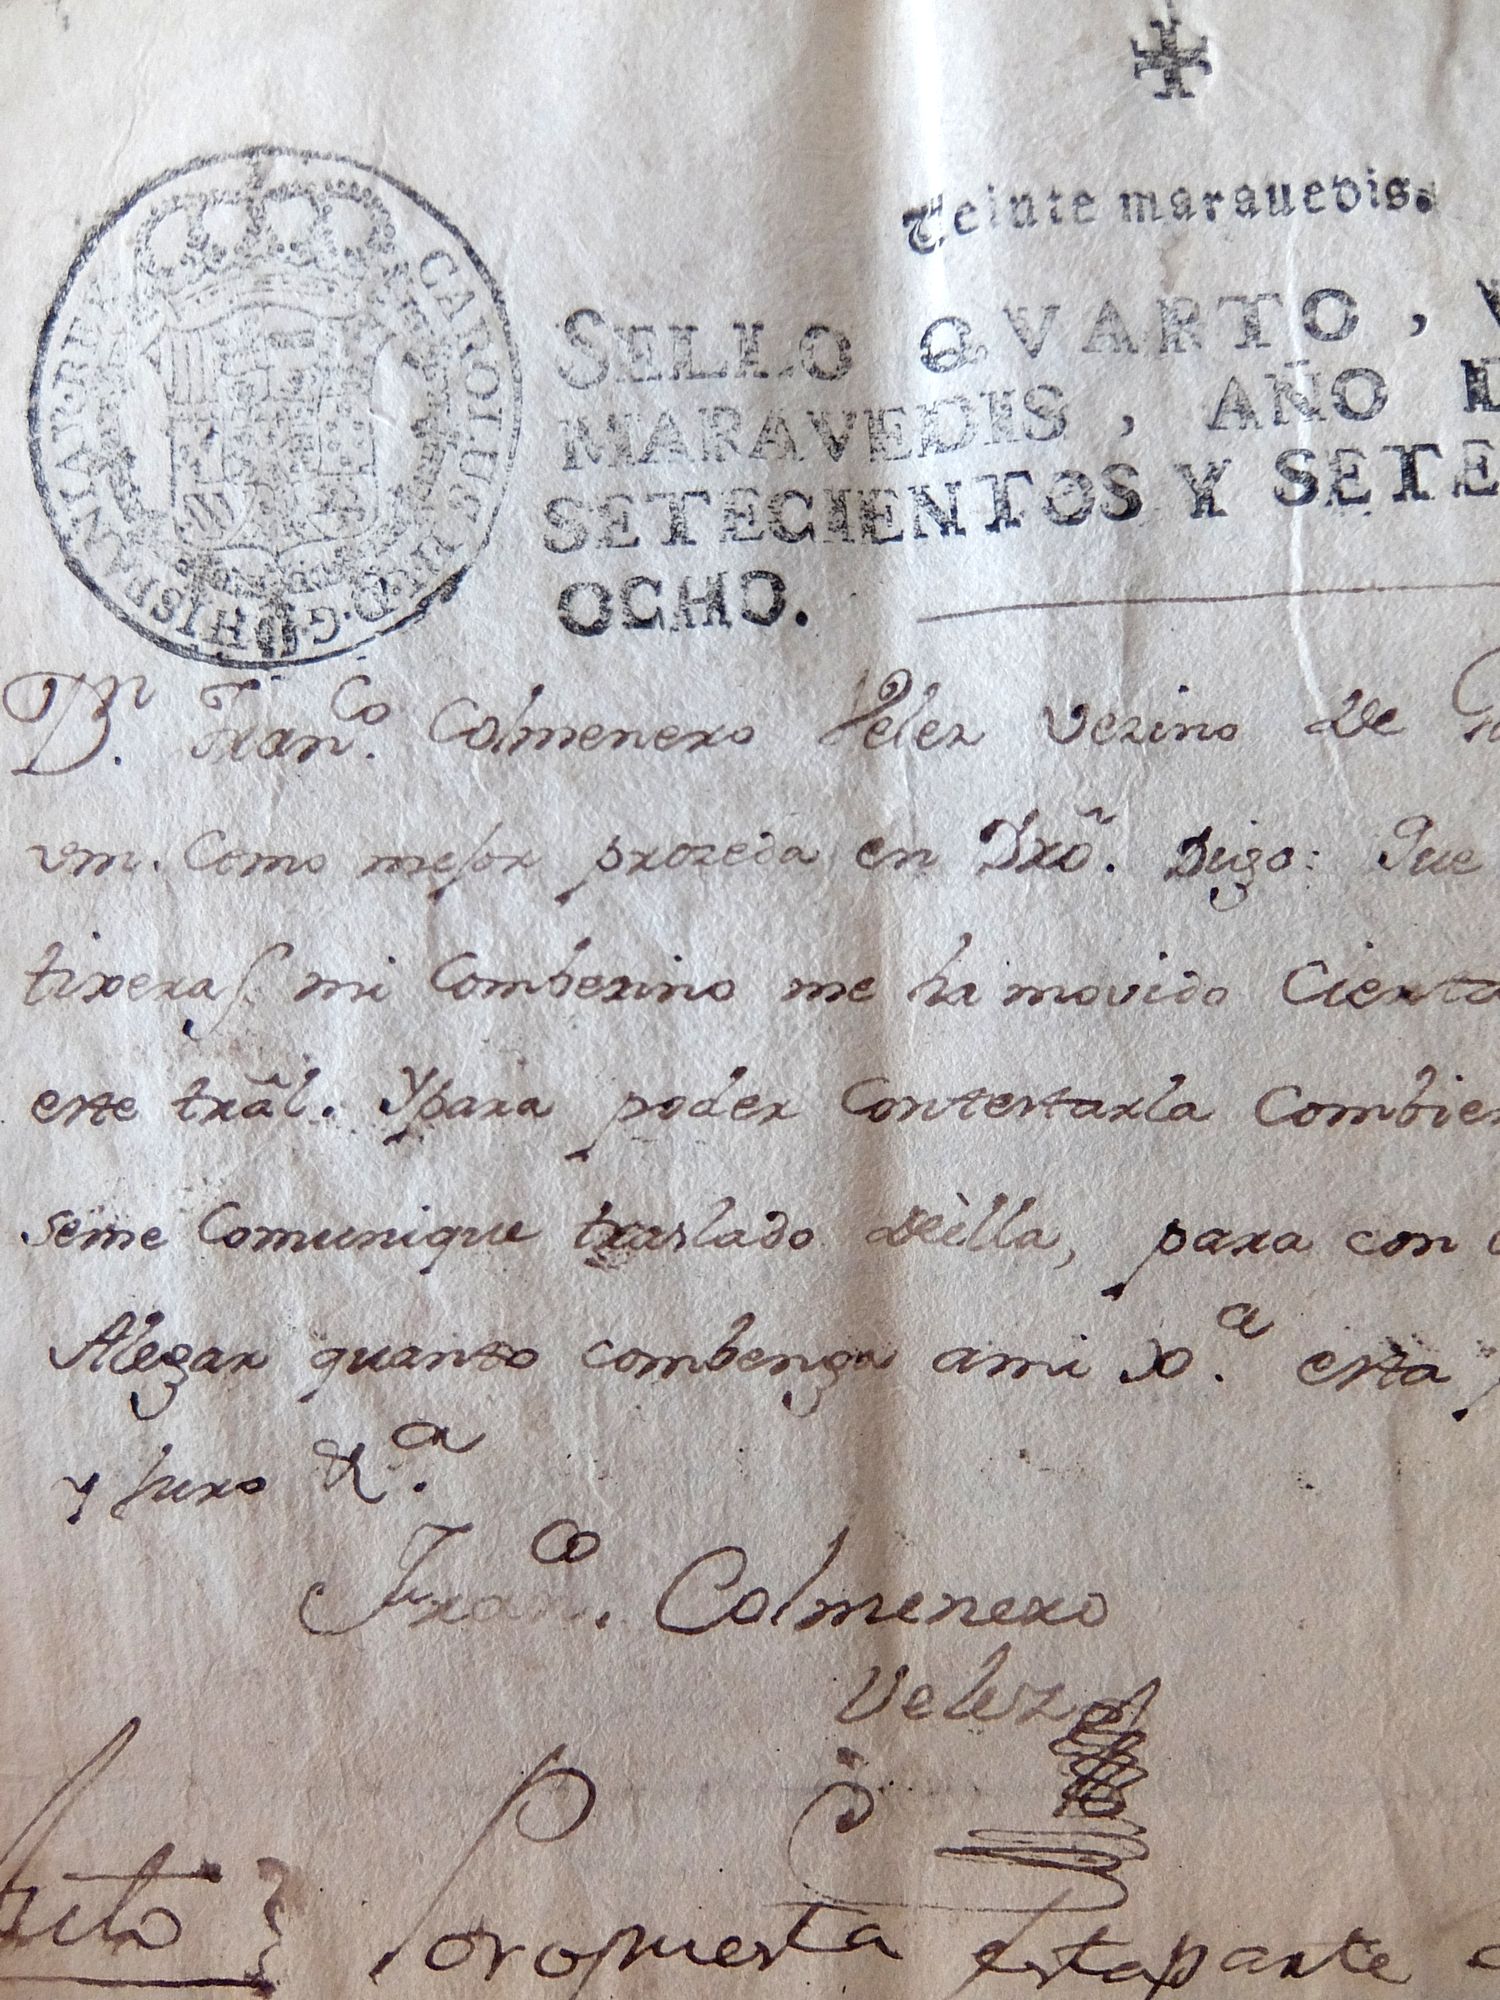 Veinte marauedis.
CAROLUS III. D. G. HISPANIAR. REX
SELLO QVARTO, V
MARAVEDIS, AÑO D
SETECIENTOS Y SETE
OCHO.
Dn. Franco. Colmenero Velez vezino de
vm. Como mejor prozeda en Dro. Digo: Que
tixeras mi Comberino me ha movido Cierta
este tral. Ypara poder Contestarla Combien
seme Comunique traslado deella, para con
Alegar quanto combenga ami Da. esta
y Juro &a.
Franco. Colmenero
Velez
Auto Porpuesta Estaparte